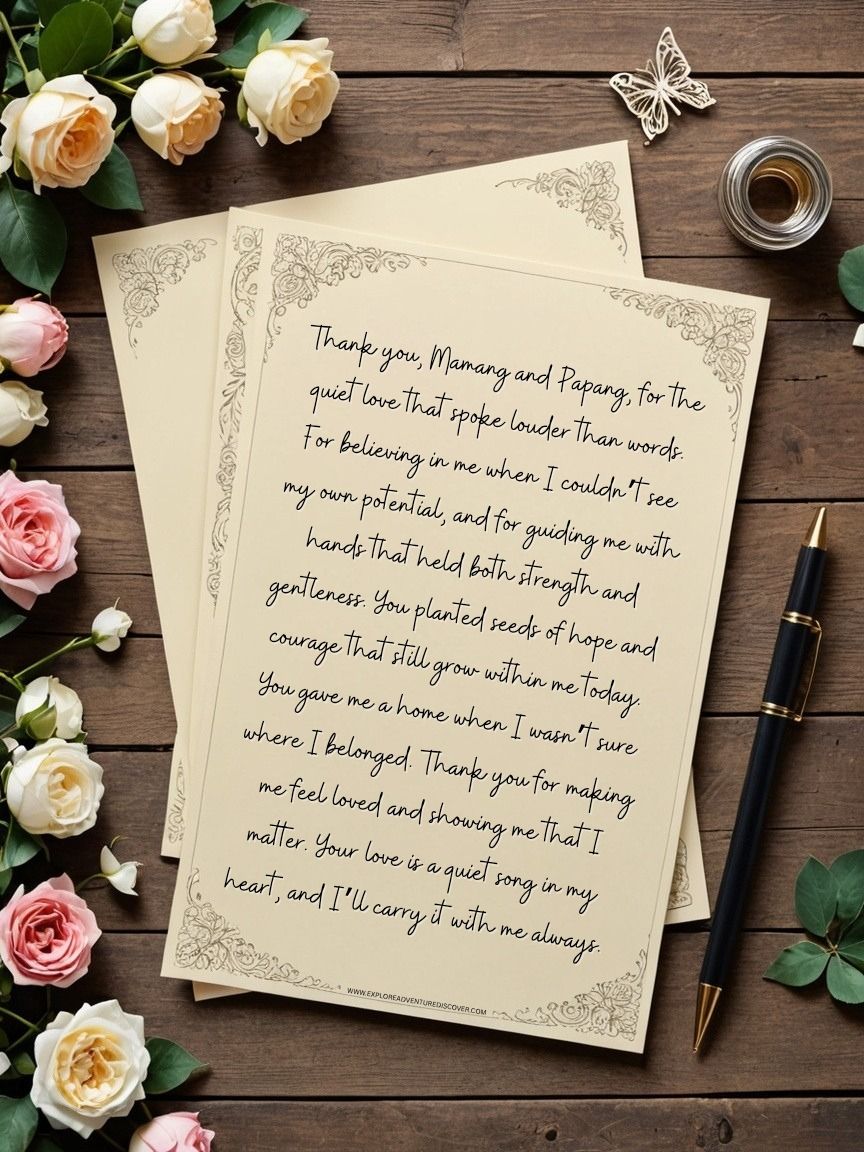 Thank you, Mamang and Papang, for the
quiet love that spoke louder than words.
For believing in me when I couldn't see
my own potential, and for guiding me with
hands that held both strength and
gentleness. You planted seeds of hope and
courage that still grow within me today.
You gave me a home when I wasn't sure
where I belonged. Thank you for making
me feel loved and showing me that I
matter. Your love is a quiet song in my
heart, and I'll carry it with me always.
WWW.EXPLOREADVENTUREDISCOVER.COM